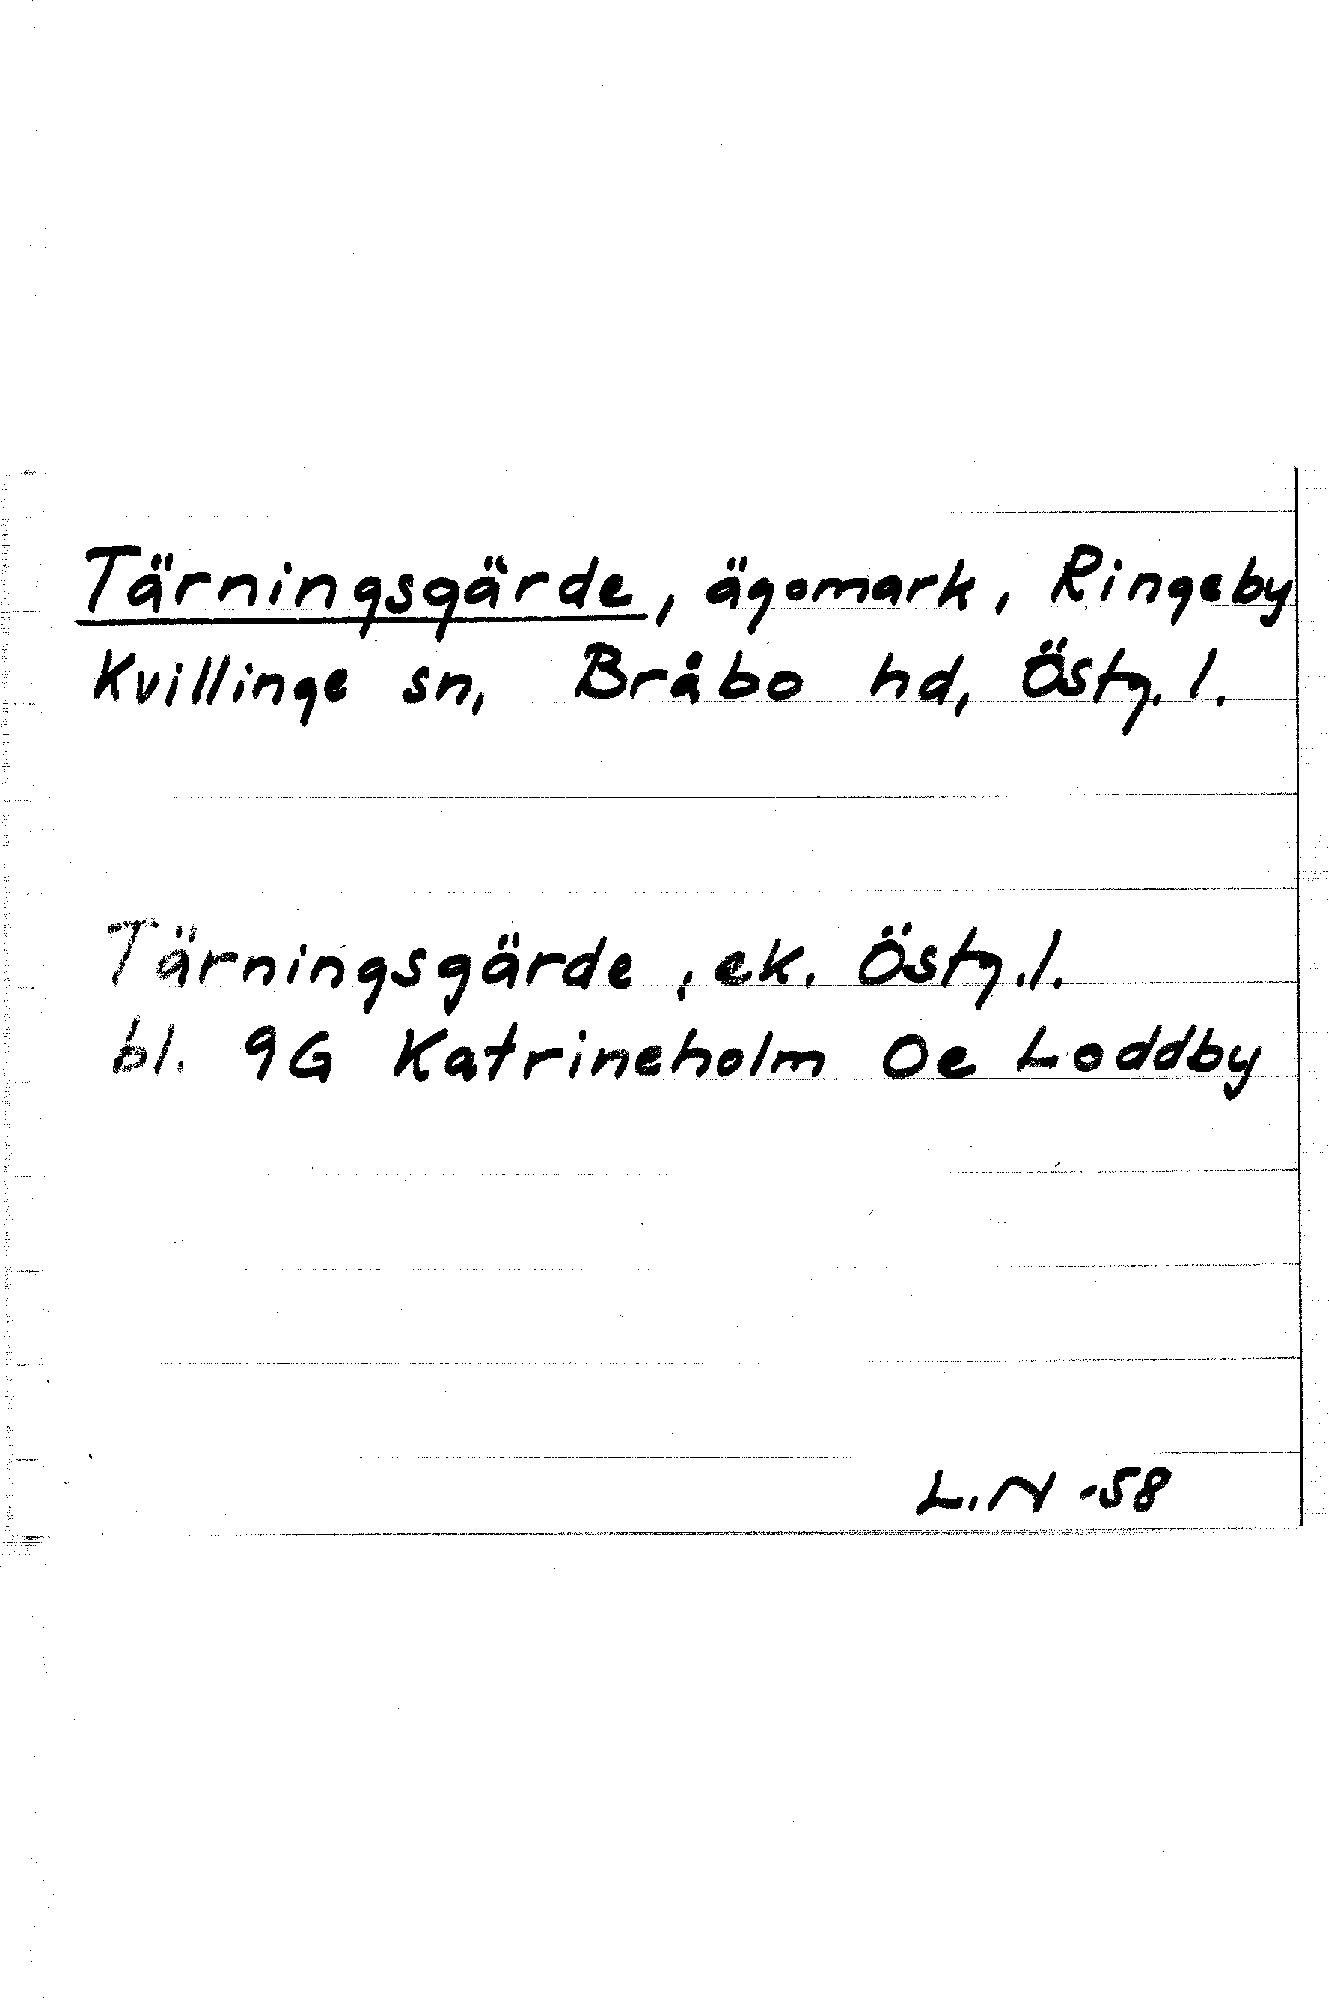 Tärningsgärde, ägomark, Ringeby
Kvillinge sn, Bråbo hd, Östg. l.
Tärningsgärde, ek. Östg. l.
bl. 9G Katrineholm Oe Loddby
L.N -58